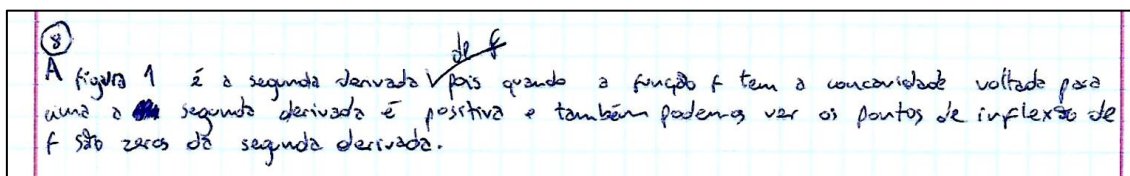 8
A figura 1 é a segunda derivada de f pois quando a função f tem a concavidade voltada para
cima a segunda derivada é positiva e também podemos ver os pontos de inflexão de
f são zeros da segunda derivada.